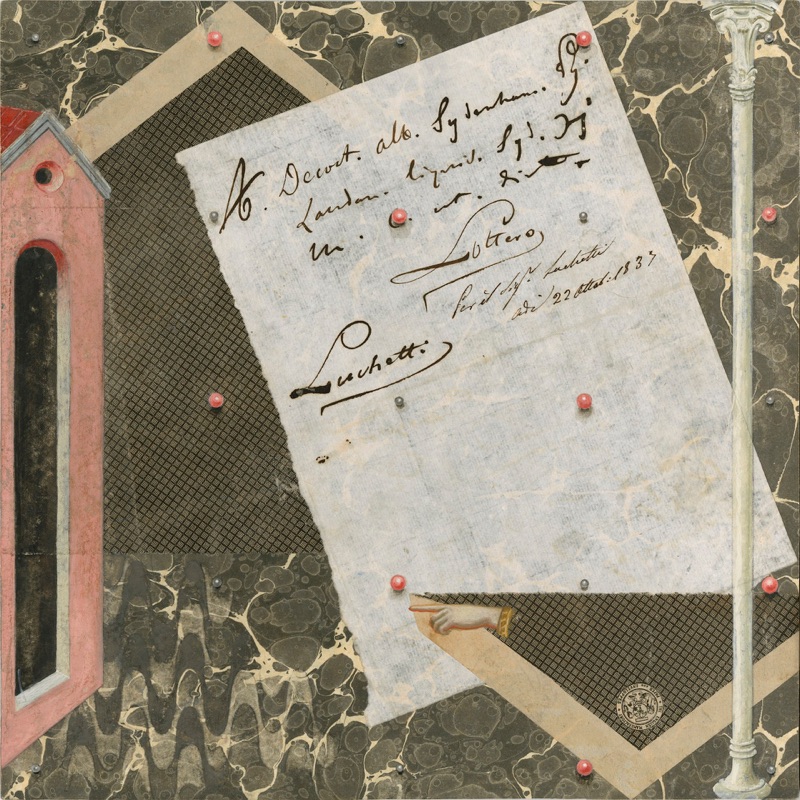 Decoct. alb. Sydenham. ℔j.
Laudan. liquid. Syd.
m.
Lottero
Per il Sigr. Luchetti
adi 22 Otteb. 1837
Luchetti